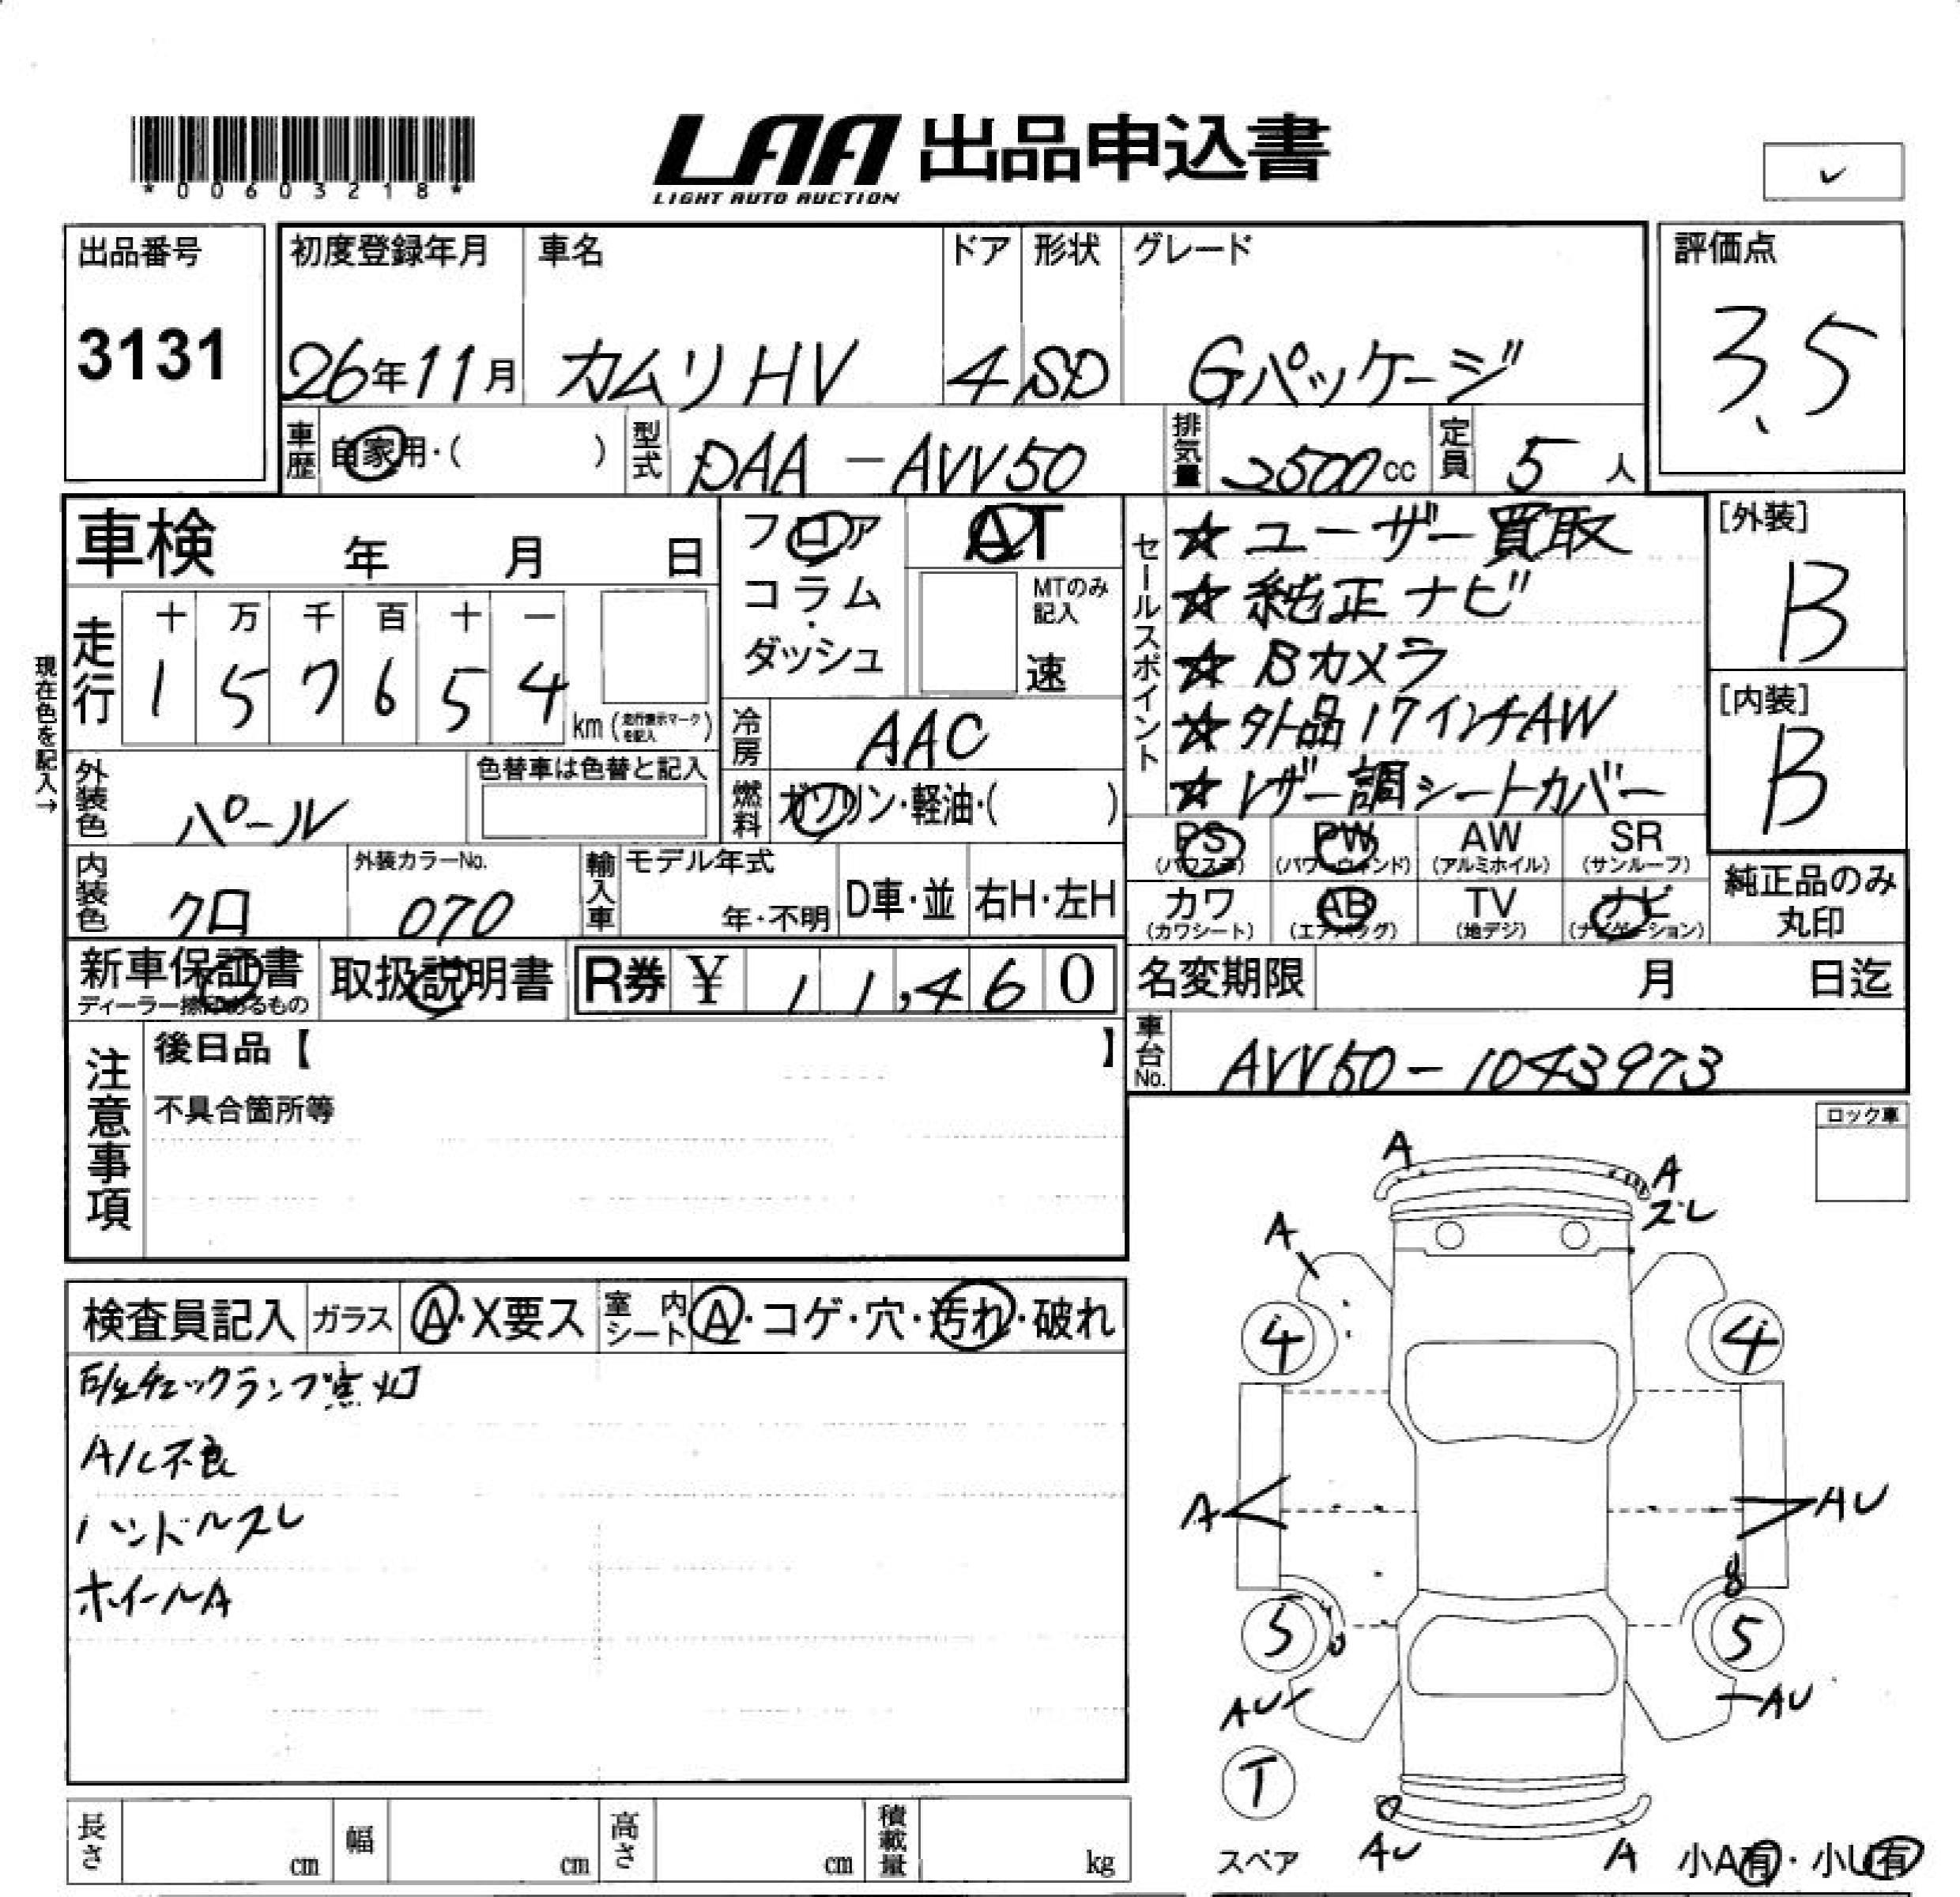 *00603218*
LAA 出品申込書
LIGHT AUTO AUCTION
✓
出品番号
3131
初度登録年月
26年11月
車名
カムリHV
ドア
4
形状
SD
グレード
Gパッケージ
評価点
3.5
車歴 自家用・( )
型式 DAA-AVV50
排気量 2500cc
定員 5人
車検 年 月 日
フロア
コラム
・
ダッシュ
AT
MTのみ
記入
速
現在色を記入→
走行
十 万 千 百 十 一
1 5 7 6 5 4
km(走行表示マークを記入)
冷房 AAC
外装色 パール
色替車は色替と記入
燃料 ガソリン・軽油・( )
内装色 クロ
外装カラーNo.
070
輸入車
モデル年式
年・不明
D車・並
右H・左H
セールスポイント
☆ユーザー買取
☆純正ナビ
☆Bカメラ
☆外品17インチAW
☆レザー調シートカバー
[外装]
B
[内装]
B
PS PW AW SR
(パワステ) (パワーウィンド) (アルミホイル) (サンルーフ)
カワ AB TV ナビ
(カワシート) (エアバッグ) (地デジ) (ナビゲーション)
純正品のみ
丸印
新車保証書
取扱説明書
R券 ¥ 11,460
名変期限 月 日迄
車台No. AVV50-1043973
注意事項
後日品【 】
不具合箇所等
ロック車
検査員記入 ガラス A・X要ス 室内シート A・コゲ・穴・汚れ・破れ
チェックランプ点灯
A/C不良
ハンドルスレ
ホイールA
A
A
ズレ
A
4 4
A
AU
5 5
AU
AU
T
スペア
AU
A
小A有・小U有
長さ cm
幅 cm
高さ cm
積載量 kg